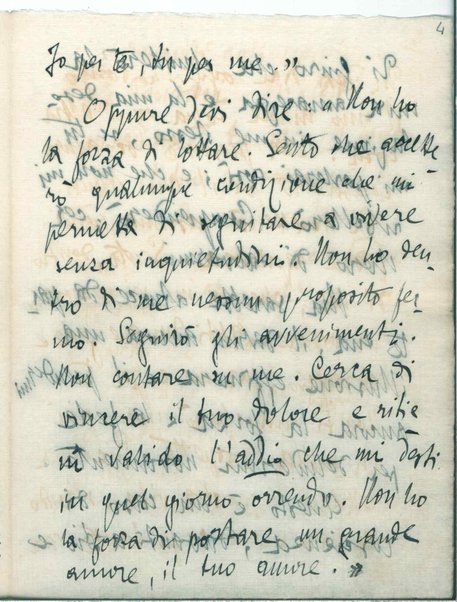 4
Io per te, tu per me."
Oppure devi dire: "Non ho
la forza di lottare. Sento che accette-
rò qualunque condizione che mi
permetta di seguitare a vivere
senza inquietudini. Non ho den-
tro di me nessun proposito fer-
mo. Seguirò gli avvenimenti.
Non contare su me. Cerca di
vincere il tuo dolore e ritie-
ni valido l'addio che mi desti
in quel giorno orrendo. Non ho
la forza di portare un grande
amore, il tuo amore."